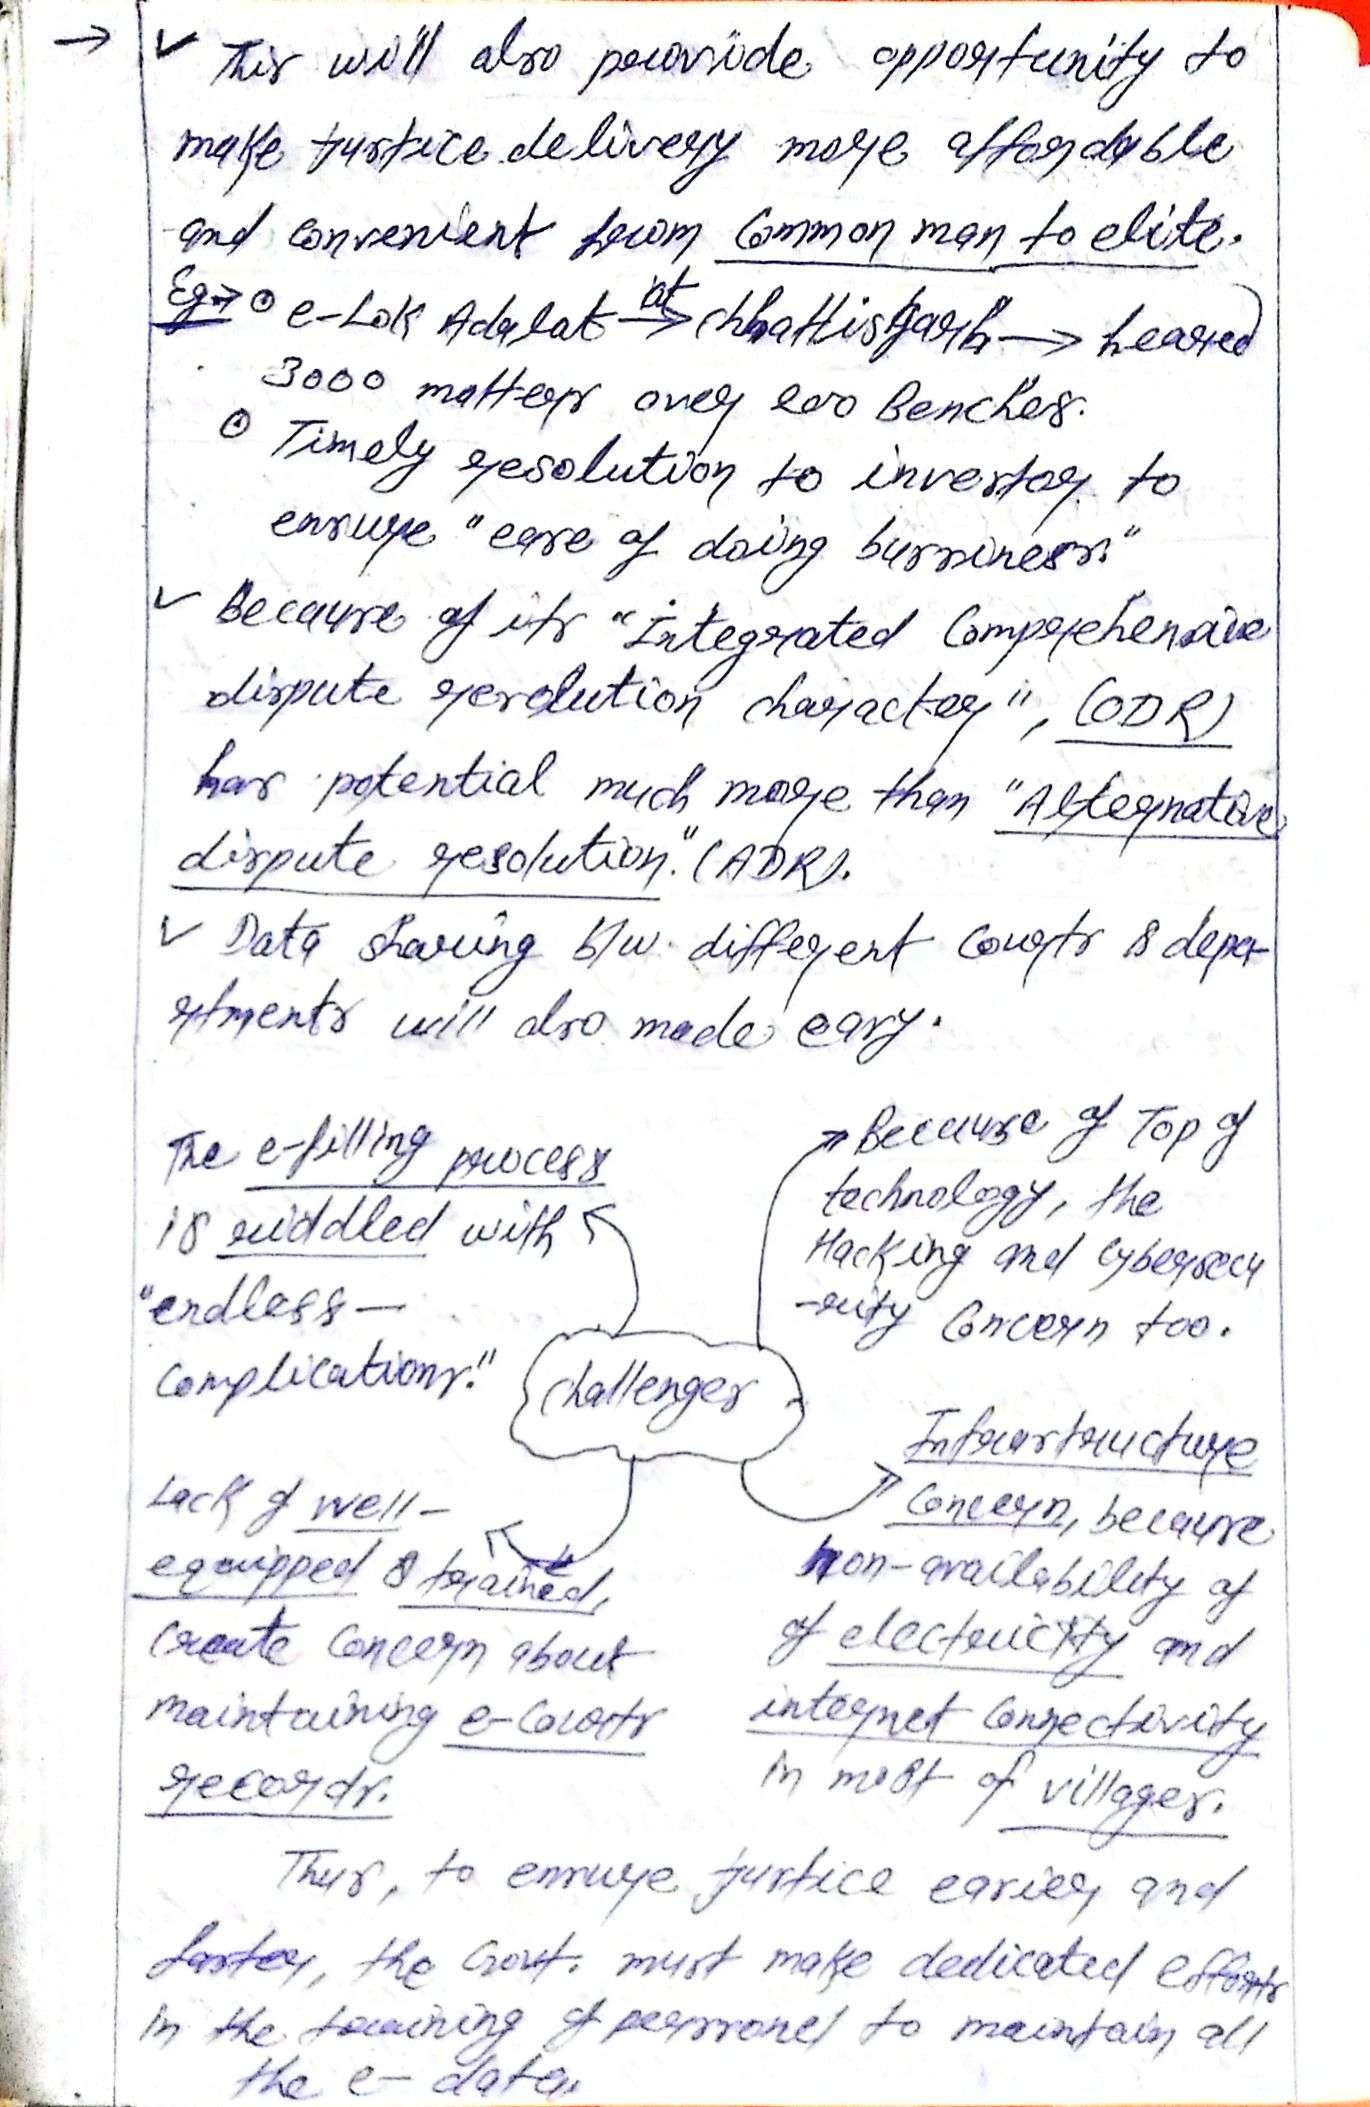 → ✓ This will also provide opportunity to
make justice delivery more affordable
and convenient from common man to elite.
Eg→ ⊙ e-Lok Adalat at→ Chhattisgarh → heared
3000 matters over 200 Benches.
⊙ Timely resolution to investor to
ensure "ease of doing bussiness."
✓ Because of its "Integrated Comprehensive
dispute resolution character", (ODR)
has potential much more than "Alternative
dispute resolution." (ADR).
✓ Data sharing b/w different Courts & depa-
rtments will also made easy.
The e-filling process
is riddled with
"endless—
Complications."
→ Because of Top of
technology, the
Hacking and Cybersecu
-rity Concern too.
Challenges
Lack of well-
equipped & trained,
Create Concern about
maintaining e-Courts
records.
Infrastructure
Concern, because
non-availability of
of electricity and
internet Connectivity
in most of villages.
Thus, to ensure justice easier and
faster, the Govt. must make dedicated efforts
in the training of personnel to maintain all
the e-data.